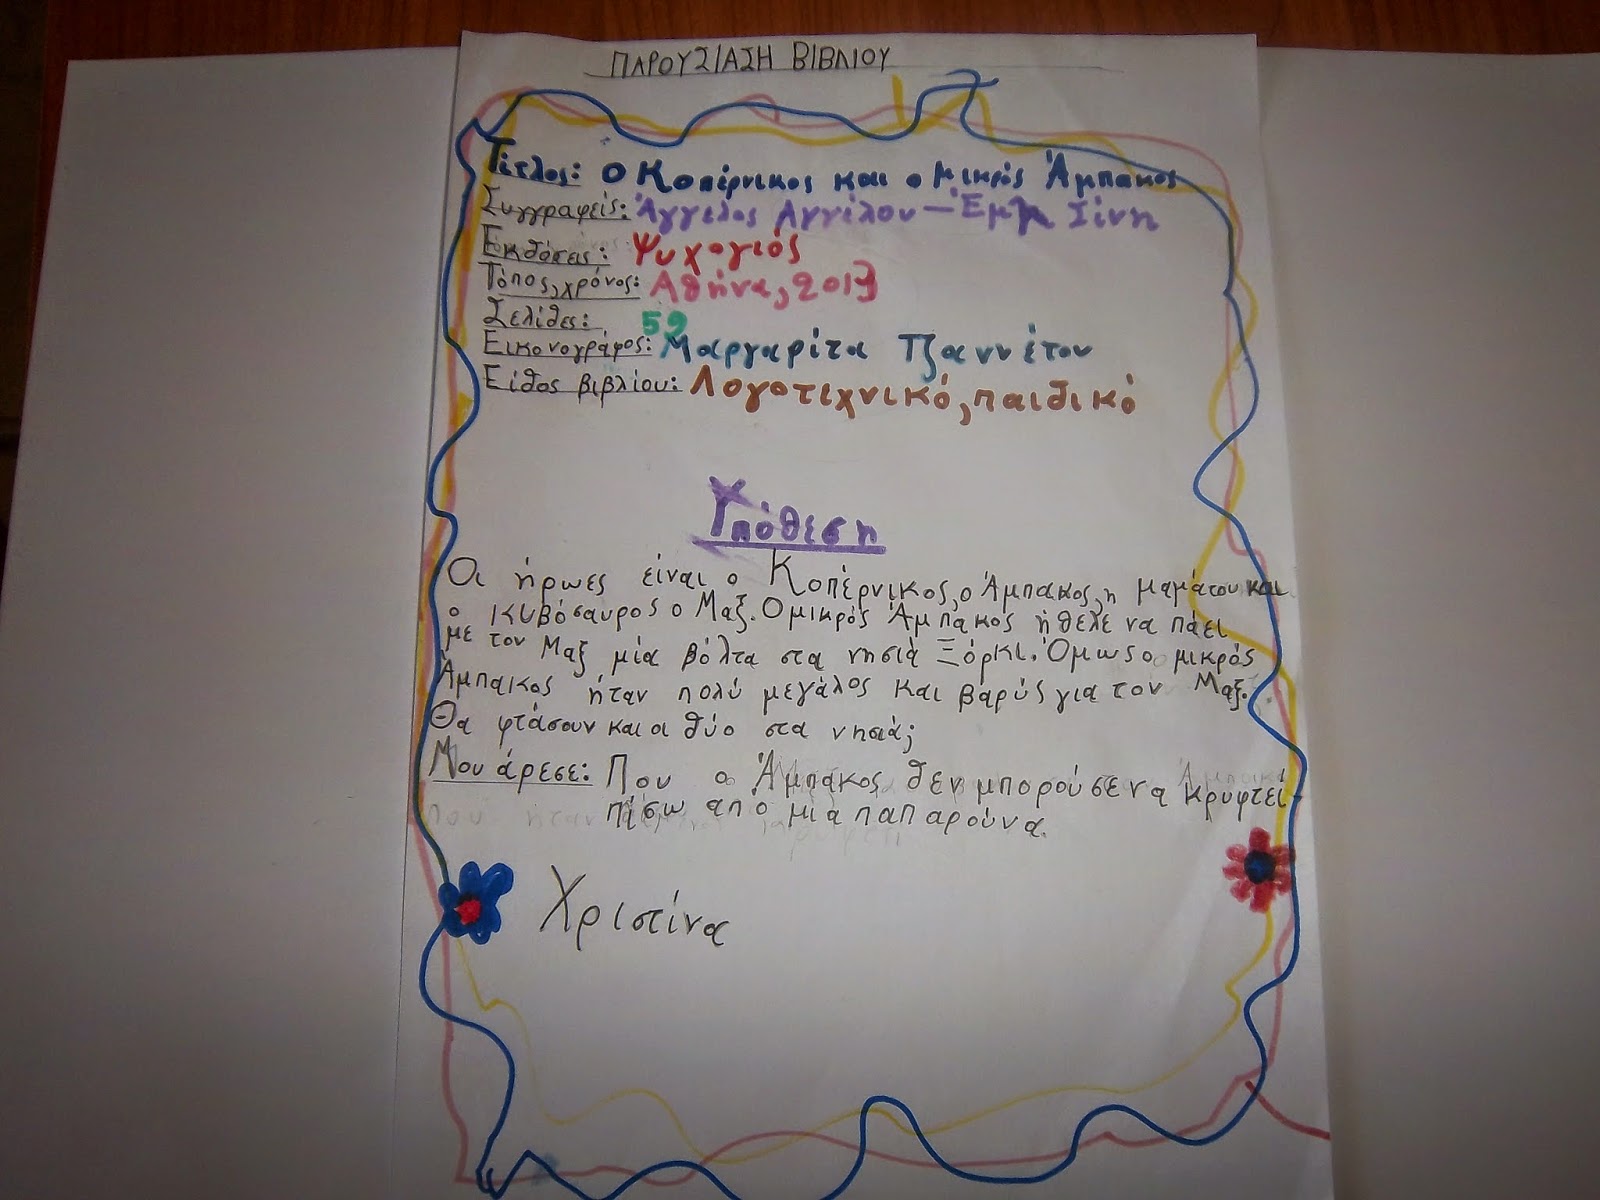 ΠΑΡΟΥΣΙΑΣΗ ΒΙΒΛΙΟΥ
Τίτλος: Ο Κοπέρνικος και ο μικρός Άμπακος
Συγγραφείς: Άγγελος Αγγέλου – Έμη Σίνη
Εκδόσεις: Ψυχογιός
Τόπος, χρόνος: Αθήνα, 2013
Σελίδες: 59
Εικονογράφος: Μαργαρίτα Τζαννέτου
Είδος βιβλίου: Λογοτεχνικό, παιδικό
Υπόθεση
Οι ήρωες είναι ο Κοπέρνικος, ο Άμπακος, η μαμά του και
ο κυβόσαυρος ο Μαξ. Ο μικρός Άμπακος ήθελε να πάει
με τον Μαξ μία βόλτα στα νησιά Ξόρκι. Όμως ο μικρός
Άμπακος ήταν πολύ μεγάλος και βαρύς για τον Μαξ.
Θα φτάσουν και οι δύο στα νησιά;
Μου άρεσε: Που ο Άμπακος δεν μπορούσε να κρυφτεί
πίσω από μία παπαρούνα.
Χριστίνα